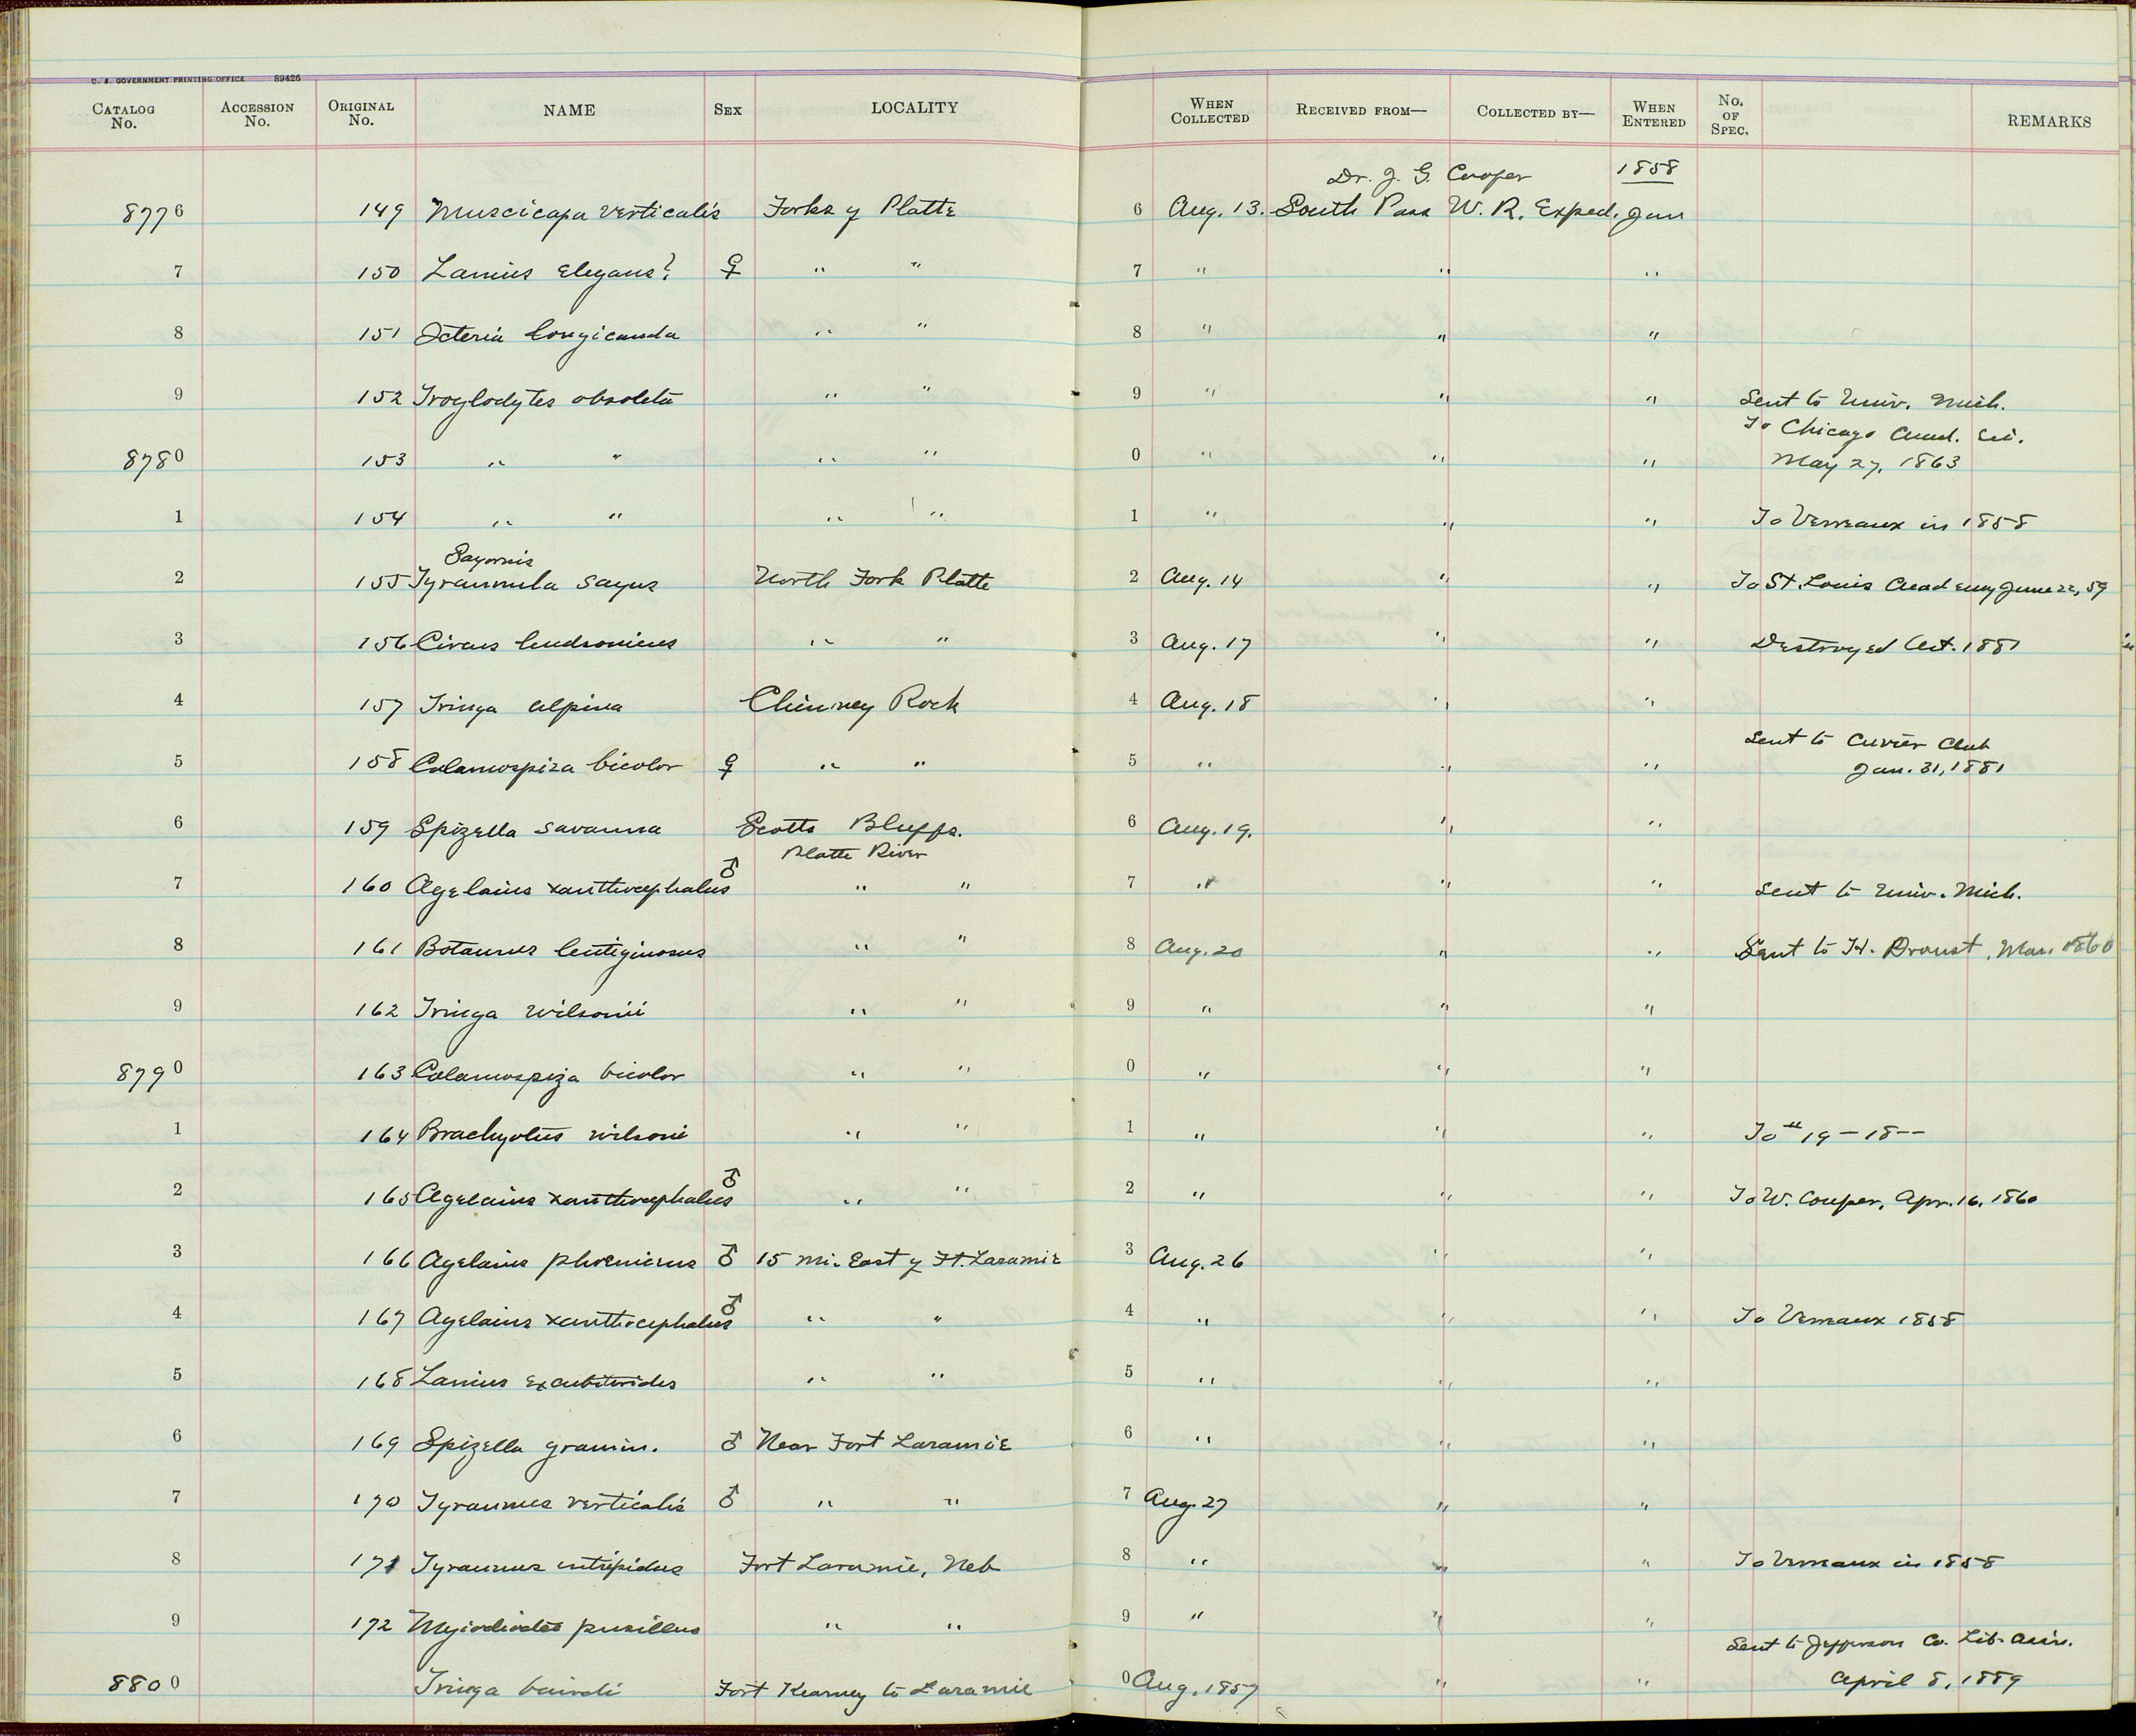 U. S. GOVERNMENT PRINTING OFFICE 89426
CATALOG No. ACCESSION No. ORIGINAL No. NAME SEX LOCALITY WHEN COLLECTED RECEIVED FROM— COLLECTED BY— WHEN ENTERED No. OF SPEC. REMARKS
Dr. J. G. Cooper 1858
8776 149 Muscicapa verticalis Forks of Platte 6 Aug. 13. South Pass W. R. Exped. Jan
7 150 Lanius elegans? ♀ " " 7 " " "
8 151 Icteria longicauda " " 8 " " "
9 152 Troglodytes obsoleta " " 9 " " " Sent to Univ. Mich.
To Chicago Acad. Sci.
8780 153 " " " " 0 " " " May 27, 1863
1 154 " " " " 1 " " " To Verreaux in 1858
Sayornis
2 155 Tyrannula sayus North Fork Platte 2 Aug. 14 " " To St. Louis Academy June 22, 59
3 156 Circus hudsonicus " " 3 Aug. 17 " " Destroyed Oct. 1881
4 157 Tringa alpina Chimney Rock 4 Aug. 18 " "
Sent to Cuvier Club
5 158 Calamospiza bicolor ♀ " " 5 " " " Jan. 31, 1881
6 159 Spizella savanna Scotts Bluffs. 6 Aug. 19. " "
Platte River
7 160 Agelaius xanthocephalus ♂ " " 7 " " " Sent to Univ. Mich.
8 161 Botaurus lentiginosus " " 8 Aug. 20 " " Sent to H. Drouet, Mar. 1860
9 162 Tringa wilsonii " " 9 " " "
8790 163 Calamospiza bicolor " " 0 " " "
1 164 Brachyotus wilsoni " " 1 " " " To # 19-18--
2 165 Agelaius xanthocephalus ♂ " " 2 " " " To W. Couper, Apr. 16, 1860
3 166 Agelaius phoenicus ♂ 15 mi. East of Ft. Laramie 3 Aug. 26 " "
4 167 Agelaius xanthocephalus ♂ " " 4 " " " To Verreaux 1858
5 168 Lanius excubitorides " " 5 " " "
6 169 Spizella gramin. ♂ Near Fort Laramie 6 " " "
7 170 Tyrannus verticalis ♂ " " 7 Aug. 27 " "
8 171 Tyrannus intrepidus Fort Laramie, Neb 8 " " " To Verreaux in 1858
9 172 Myiodioctes pusillus " " 9 " " "
Sent to Jefferson Co. Lib. Assn.
8800 Tringa bairdi Fort Kearney to Laramie 0 Aug. 1857 " " April 8, 1889